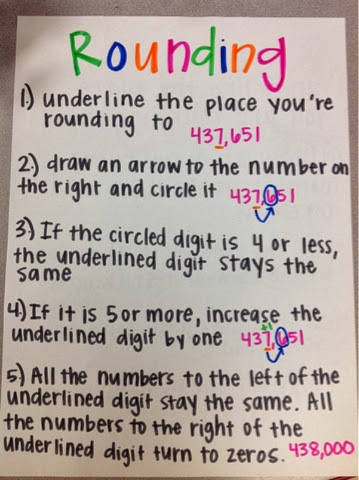 Rounding
1.) underline the place you're
rounding to 437,651
2.) draw an arrow to the number on
the right and circle it 437,651
3.) If the circled digit is 4 or less,
the underlined digit stays the
same
4.) If it is 5 or more, increase the
+1
underlined digit by one 437,651
5.) All the numbers to the left of the
underlined digit stay the same. All
the numbers to the right of the
underlined digit turn to zeros. 438,000